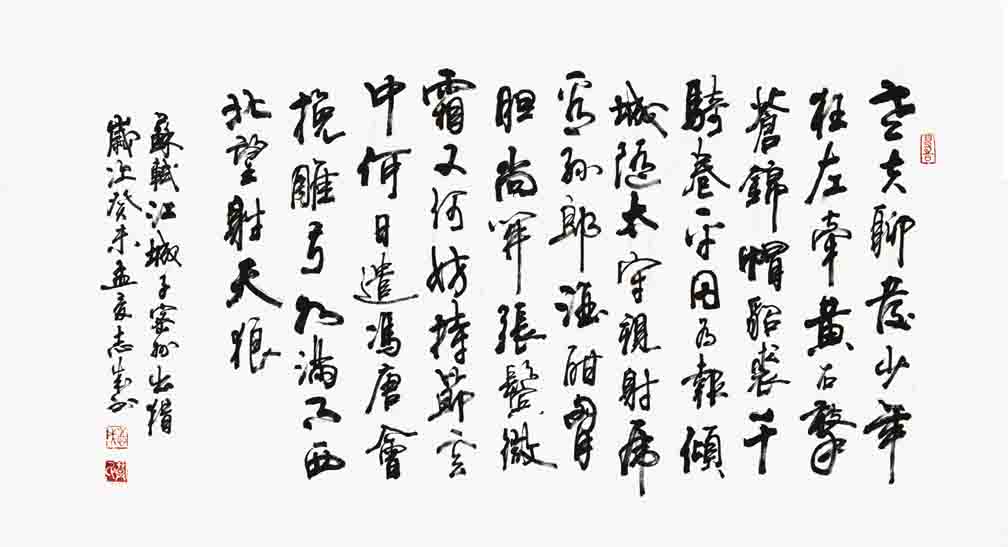 老夫聊發少年
狂左牽黃右擎
蒼錦帽貂裘千
騎卷平岡為報傾
城隨太守親射虎
看孫郎酒酣胸
胆尚開張鬢微
霜又何妨持節云
中何日遣馮唐會
挽雕弓如滿月西
北望射天狼
蘇軾江城子密州出猎
歲次癸未孟夏志